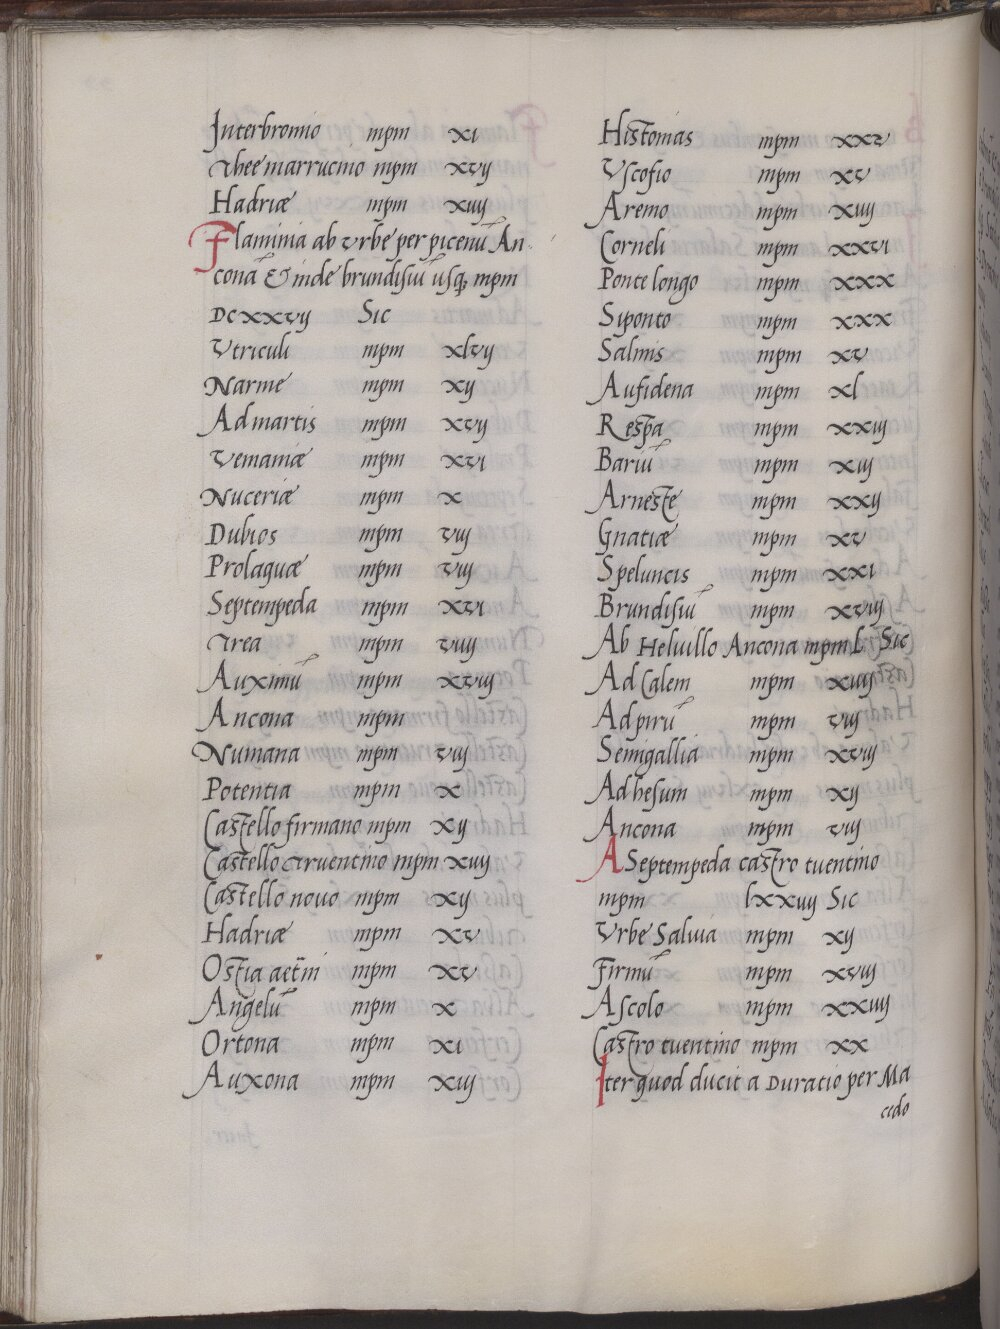 Interbromio mpm xi
Thee marrucino mpm xvij
Hadriæ mpm xiiij
Flaminia ab vrbe per picenū An
conā & inde brundisiū usq; mpm
DCxxvij Sic
Vtriculi mpm xlvij
Narnie mpm xij
Ad martis mpm xvij
Vemaniæ mpm xvi
Nuceriæ mpm x
Dubios mpm viij
Prolaquæ mpm viij
Septempeda mpm xvi
Trea mpm viiij
Auximū mpm xviij
Ancona mpm
Numana mpm viij
Potentia mpm x
Castello firmano mpm xij
Castello truentino mpm xiiij
Castello nouo mpm xij
Hadriæ mpm xv
Ostia aetn̄i mpm xv
Angelū mpm x
Ortona mpm xi
Auxona mpm xiij
Histonias mpm xxv
Vscosio mpm xv
Aremo mpm xiiij
Corneli mpm xxvi
Ponte longo mpm xxx
Siponto mpm xxx
Salinis mpm xv
Aufidena mpm xl
Respa mpm xxiij
Bariū mpm xiij
Arneste mpm xxij
Gnatiæ mpm xv
Speluncis mpm xxi
Brundisiū mpm xviij
Ab Heluillo Ancona mpm L Sic
Ad Calem mpm xiiij
Ad pirū mpm viij
Senigallia mpm xviij
Ad hesum mpm xij
Ancona mpm viij
A Septempeda castro tuentino
mpm lxxiiij Sic
Vrbe Saluia mpm xij
Firmū mpm xviij
Ascolo mpm xxiiij
Castro tuentino mpm xx
Iter quod ducit a Duratio per Ma
cedo